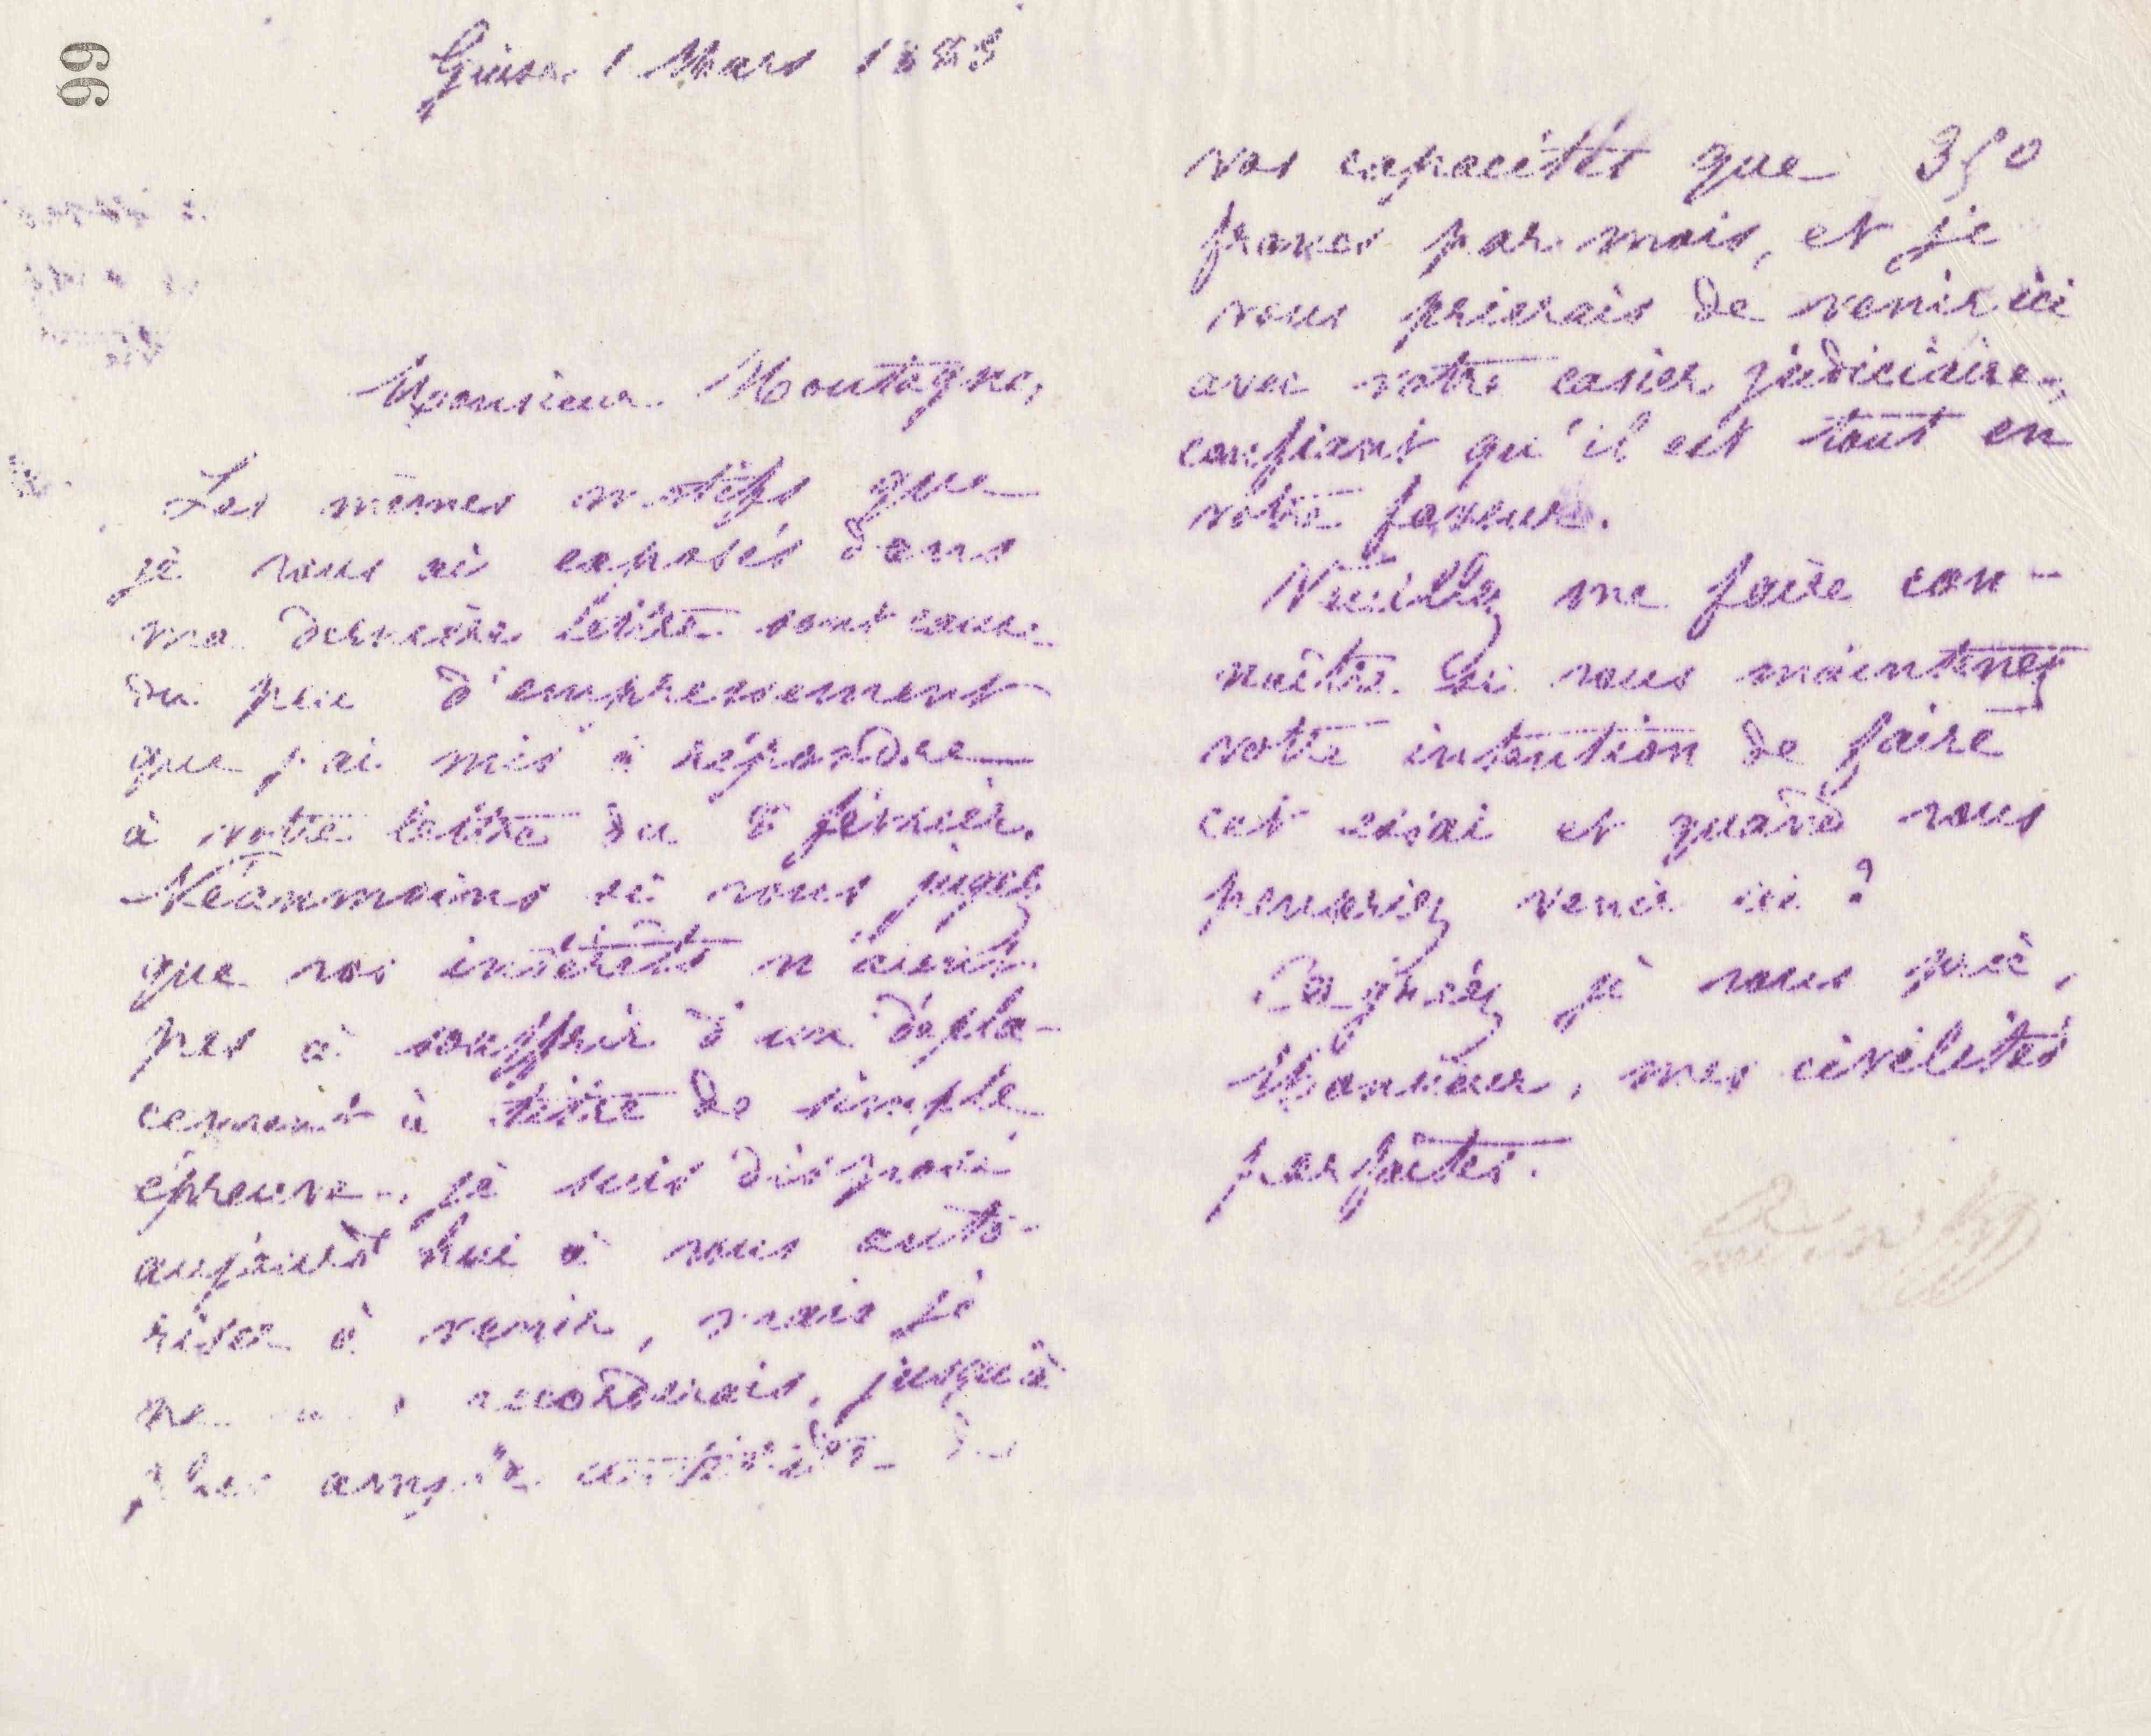 99
Guise 1 Mars 1888
Monsieur Montagne,
Les mêmes motifs que
je vous ai exposés dans
ma dernière lettre sont cause
du peu d'empressement
que j'ai mis à répondre
à votre lettre du 8 février.
Néanmoins si vous jugez
que vos intérêts n'aient
pas à souffrir d'un dépla-
cement à titre de simple
épreuve, je suis disposé
aujourd'hui à vous auto-
riser à venir, mais je
ne accorderais, jusqu'à
plus ample
vos capacités que 350
francs par mois, et je
vous prierais de venir ici
avec votre casier judiciaire,
confiant qu'il est tout en
votre faveur.
Veuillez me faire con-
naître si vous maintenez
votre intention de faire
cet essai et quand vous
pourriez venir ici ?
Agréez je vous prie,
Monsieur, mes civilités
parfaites.